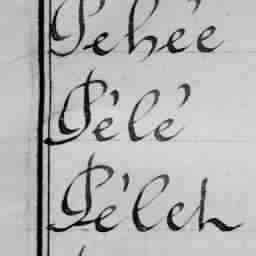 Pehée
Pélé
Péleh